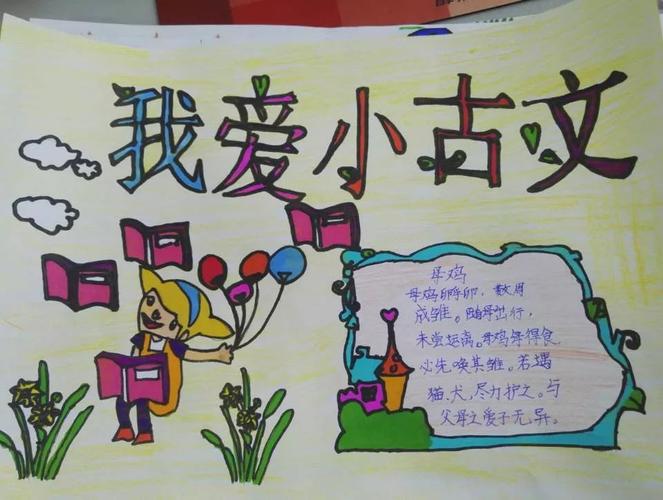 我爱小古文
母鸡
母鸡孵卵，数周
成雏。随母出行，
未尝远离。母鸡每得食，
必先唤其雏。若遇
猫、犬，尽力护之。与
父母之爱子无异。